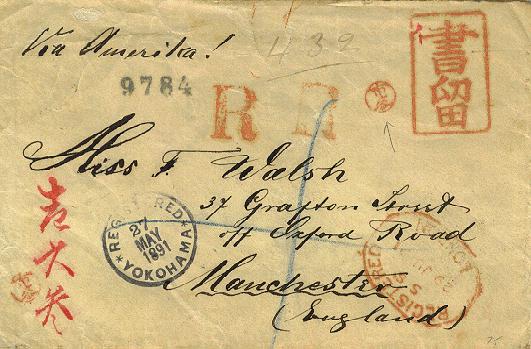 Via Amerika!
439
9784
R R
書留
Miss F. Walsh
37 Grafton Street
off Oxford Road
Manchester
(England)
REGISTERED
27
MAY
1891
YOKOHAMA
REGISTERED
LONDON
壱大叁